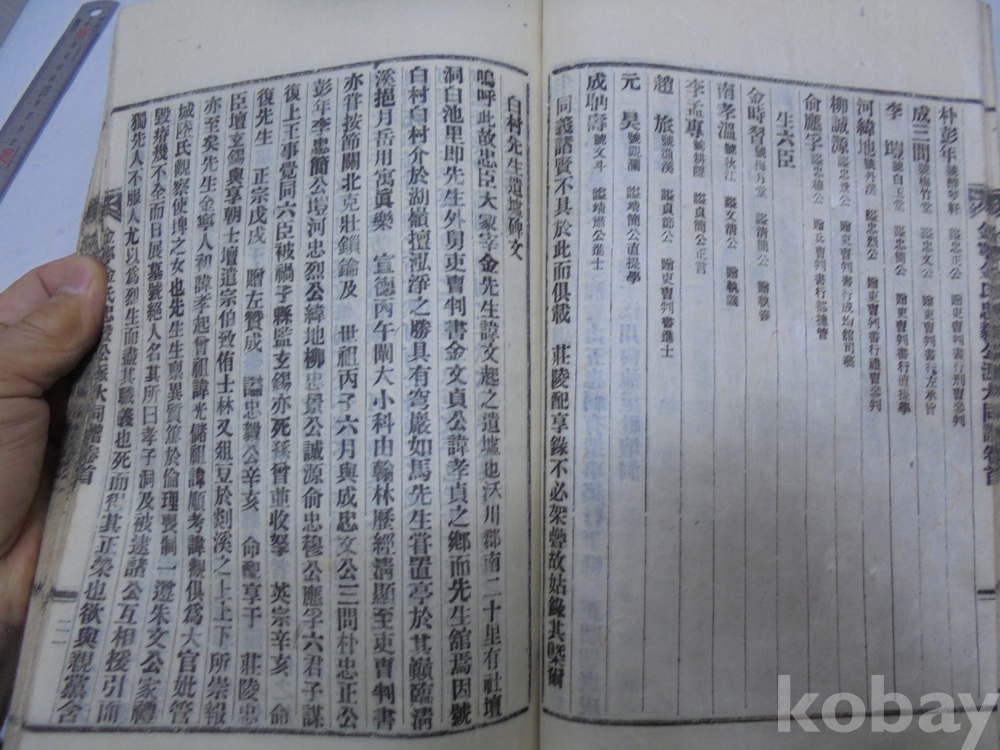 朴彭年 號醉琴軒 諡忠正公 贈吏曹判書行刑曹參判
成三問 號梅竹堂 諡忠文公 贈吏曹判書行左承旨
李 塏 號白玉堂 諡忠簡公 贈吏曹判書行直提學
河緯地 號丹溪 諡忠烈公 贈吏曹判書行禮曹參判
柳誠源 諡忠景公 贈吏曹判書行成均館司藝
俞應孚 諡忠穆公 贈兵曹判書行都摠管
生六臣
金時習 號梅月堂 諡淸簡公 贈執義
南孝溫 號秋江 諡文淸公 贈執義
李孟專 號耕隱 諡貞簡公 贈正言
趙 旅 號漁溪 諡貞節公 贈吏曹判書進士
元 昊 號觀瀾 諡靖簡公直提學
成聃壽 號文斗 諡靖肅公進士
同義諸賢不具於此而俱載 莊陵配享錄不必架疊故姑錄其槩爾
白村先生遺墟碑文
嗚呼此故忠臣大冢宰金先生諱文起之遺墟也沃川郡南二十里有社壇
洞白池里卽先生外舅吏曹判書金文貞公諱孝貞之鄕而先生舘焉因號
白村白村介於湖嶺擅泓淨之勝具有穹巖如馬先生嘗置亭於其巓臨淸
溪挹月岳用寓眞樂 宣德丙午闡大小科由翰林歷經淸顯至吏曹判書
亦嘗按節關北克壯鎖鑰及 世祖丙子六月與成忠文公三問朴忠正公
彭年李忠簡公塏河忠烈公緯地柳忠景公誠源俞忠穆公應孚六君子謀
復上王事覺同六臣被禍子縣監玄錫亦死孫曾並收孥 英宗辛亥 命
復先生 正宗戊戌 贈左贊成 諡忠毅公辛亥 命配享于 莊陵忠
臣壇玄錫與享朝士壇遣宗伯致侑士林又俎豆於剡溪之上上下所崇報
亦至矣先生金寧人和諱孝起曾祖諱光儲祖諱順考諱觀俱爲大官妣管
城陸氏觀察使埤之女也先生生而異質篤於倫理喪制一遵朱文公家禮
毁瘠幾不全而日展墓號絕人名其所曰孝子洞及被逮諸公互相援引而
獨先人不服人尤以爲烈生而盡其職義也死而得其正榮也欲與親黨含